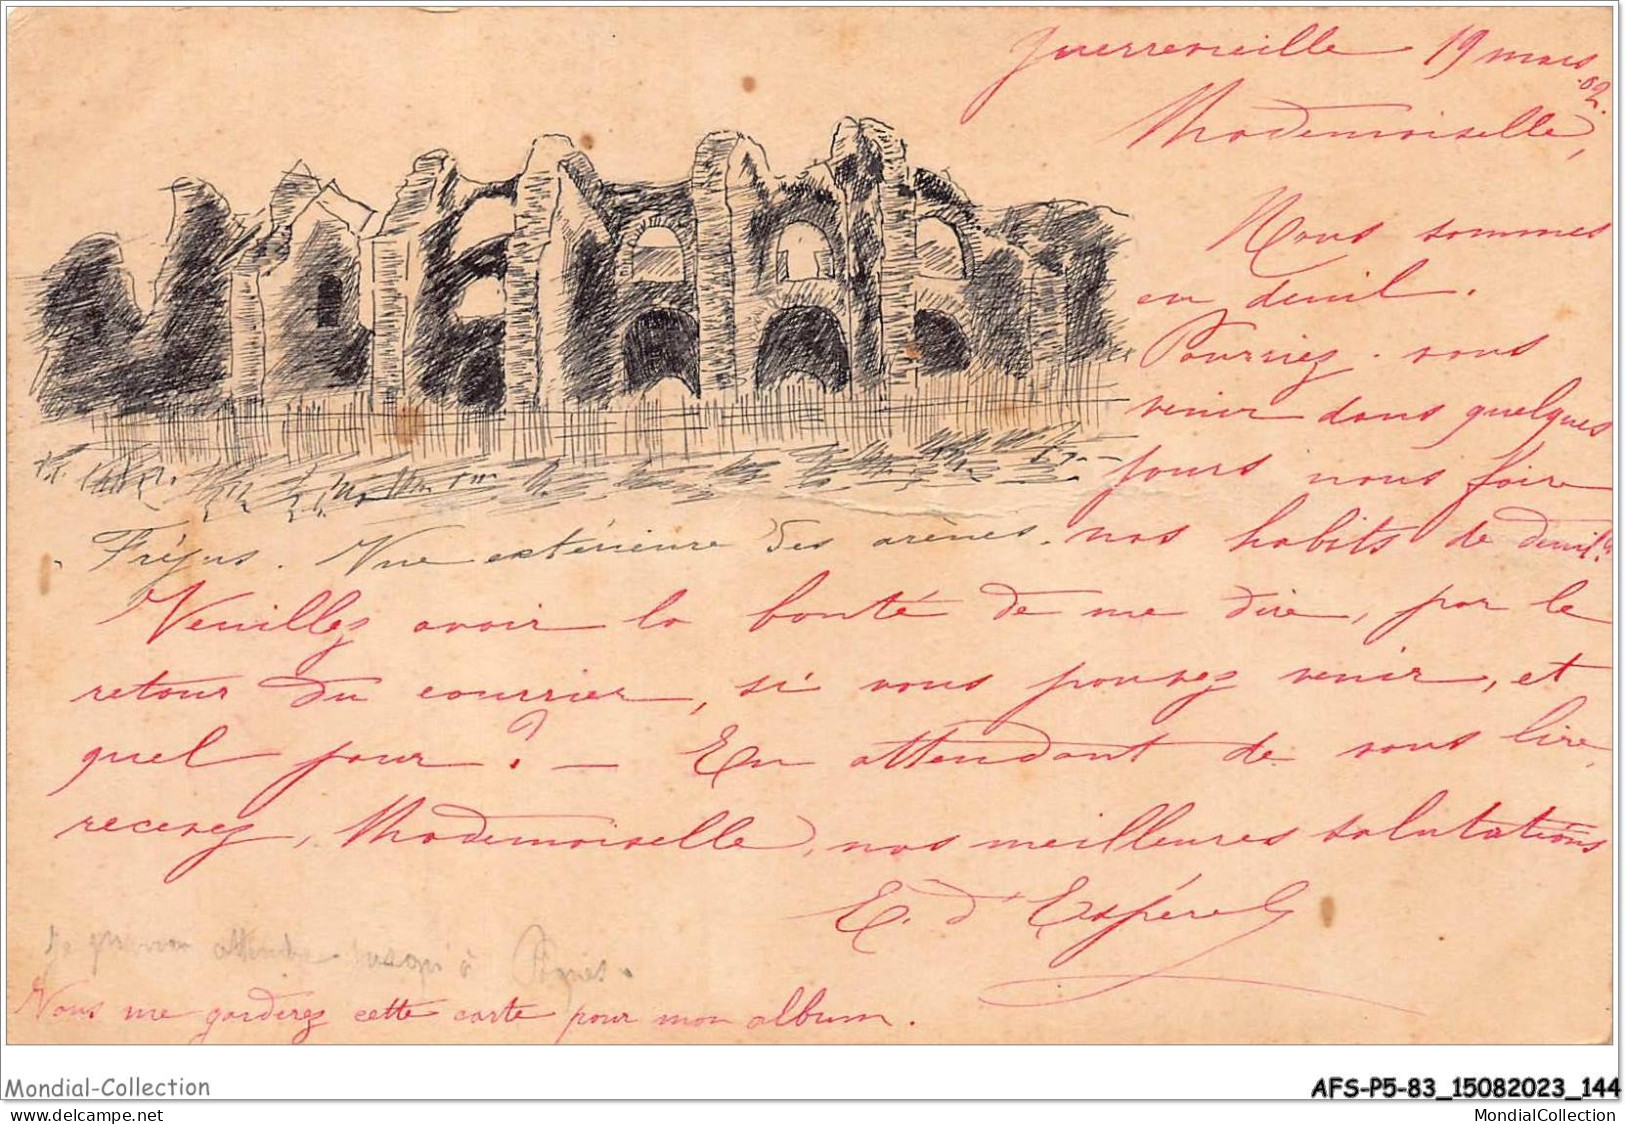 Guerrevieille 19 mars
02.
Mademoiselle,
Nous sommes
en deuil.
Pourriez-vous
venir dans quelques
jours nous faire
Fréjus. Vue extérieure des arènes.
nos habits de deuil?
Veuillez avoir la bonté de me dire, par le
retour du courrier, si vous pouvez venir, et
quel jour? — En attendant de vous lire,
recevez, Mademoiselle, nos meilleures salutations
E. d'Espérel
attendre jusqu'à Pâques.
Vous me garderez cette carte pour mon album.
Mondial-Collection
AFS-P5-83_15082023_144
delcampe.net
MondialCollection